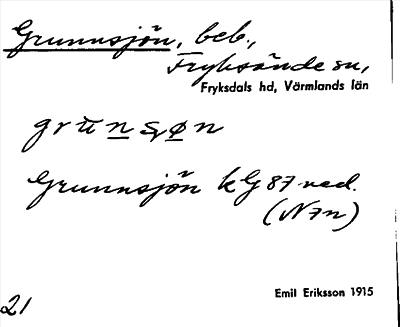 Grunnsjön, beb.,
Fryksände sn,
Fryksdals hd, Värmlands län
Grunnsjön kG 87 ned.
(N7n)
Emil Eriksson 1915
21